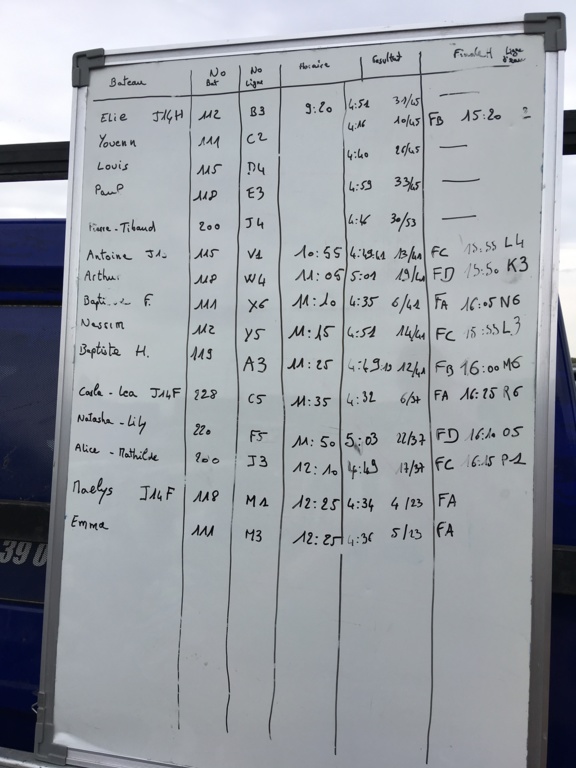 Bateau No Bat No Ligne Horaire Resultat Finale H Ligne d'eau
Elie J14H 112 B3 9:20 4:51 31/45 —
4:16 10/45 FB 15:20 ?
Youenn 111 C2
4:40 26/45 —
Louis 115 D4
Paul P 118 E3 4:59 33/45 —
Pierre-Tibaud 200 J4 4:46 30/53 —
Antoine 115 V1 10:55 4:49 13/41 FC 15:55 L4
Arthur 118 W4 11:05 5:01 19/41 FD 15:50 K3
Baptiste F. 111 X6 11:10 4:35 6/41 FA 16:05 N6
Nassim 112 Y5 11:15 4:51 14/41 FC 15:55 L3
Baptiste H. 119 A3 11:25 4:49 12/41 FB 16:00 M6
Carla-Lea J14F 228 C5 11:35 4:32 6/37 FA 16:25 R6
Natasha-Lily 220 F5 11:50 5:03 22/37 FD 16:10 O5
Alice-Mathilde 200 J3 12:10 4:49 17/37 FC 16:15 P1
Maelys J14F 118 M1 12:25 4:34 4/23 FA
Emma 111 M3 12:25 4:36 5/23 FA
39 0